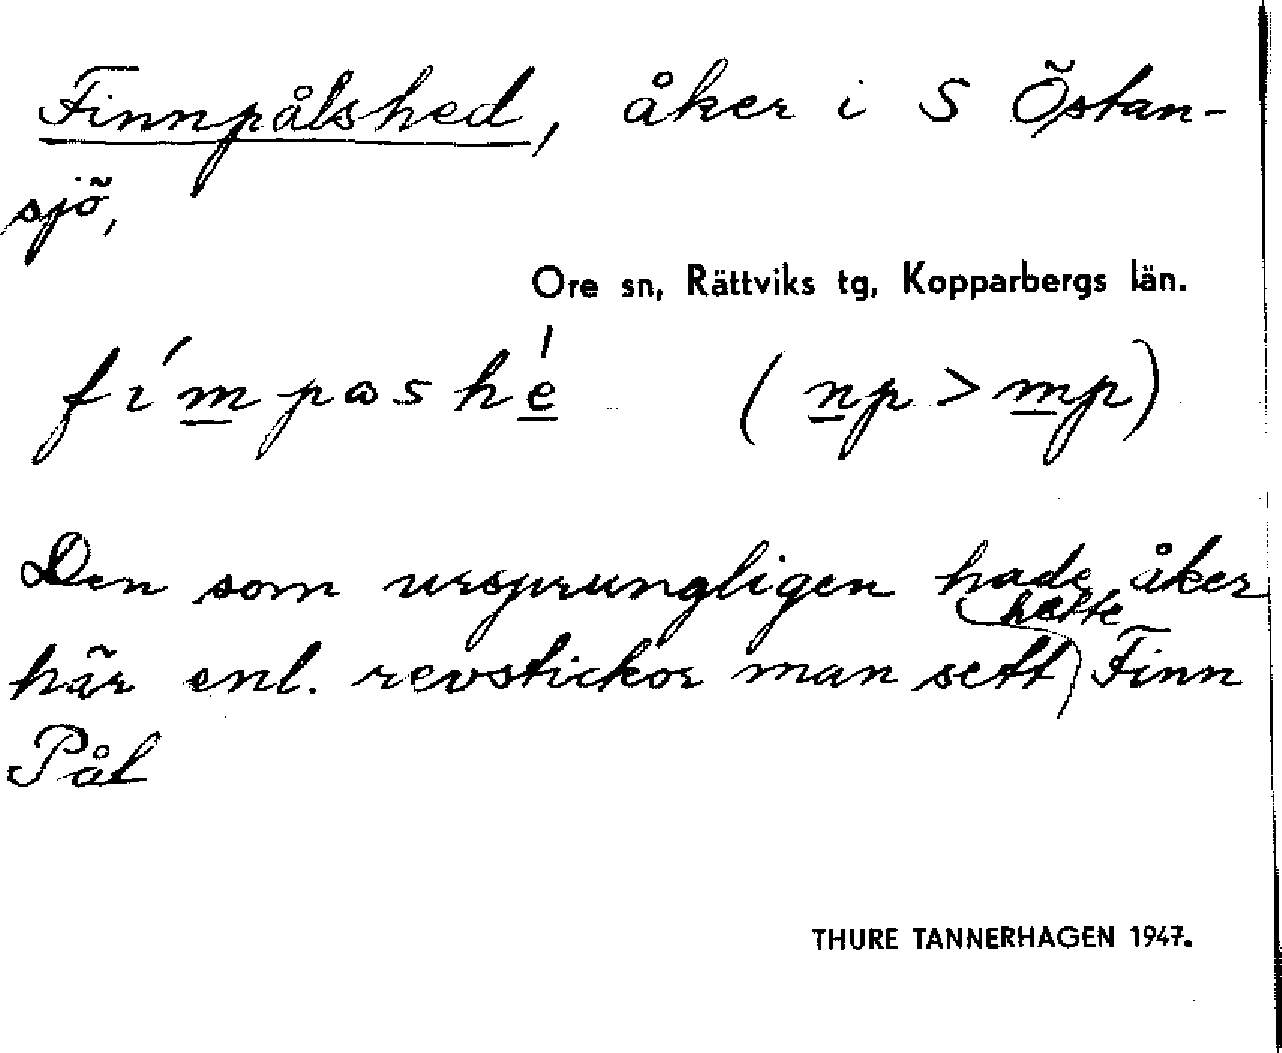 Finnpålshed, åker i S Östan-
sjö,
Ore sn, Rättviks tg, Kopparbergs län.
fímpɷshé (np > mp)
Den som ursprungligen hade åker
här enl. revstickor man sett hette Finn
Pål
THURE TANNERHAGEN 1947.